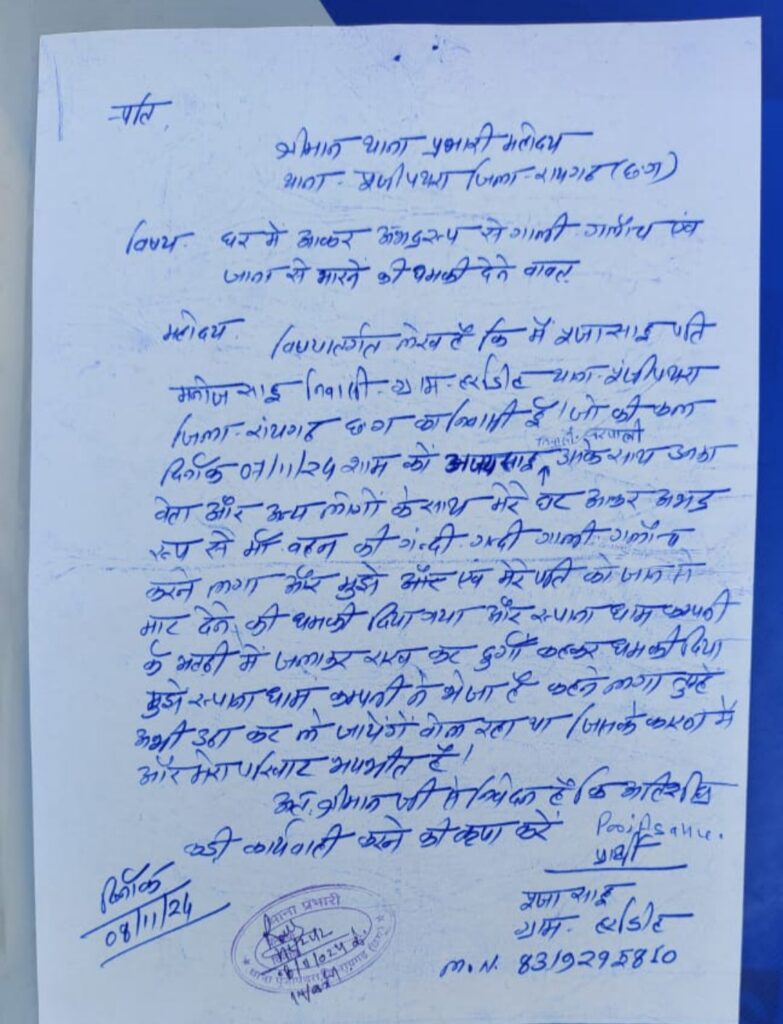 प्रति,
श्रीमान थाना प्रभारी महोदय
थाना- पूंजीपथरा जिला- रायगढ़ (छ.ग)
विषय- घर में आकर अभद्र रूप से गाली गलौच एवं
जान से मारने की धमकी देने बाबत्
महोदय, विषयान्तर्गत लेख है कि मैं पूजा साहू पति
मनोज साहू निवासी- ग्राम- हर्राडीह थाना- पूंजीपथरा
जिला- रायगढ़ छ.ग का निवासी हूँ। जो की कल
दिनाँक 07/11/24 शाम को अजय साहू उसके साथ उसका
बेटा और अन्य लोगो के साथ मेरे घर आकर अभद्र
रूप से माँ बहन की गंदी-गंदी गाली गलौच
करने लगा और मुझे और एवं मेरे पति को जान से
मार देने की धमकी दिया गया और रूपाना धाम कम्पनी
के भट्ठी में जलाकर राख कर दुंगा कहकर धमकी दिया
मुझे रूपाना धाम कम्पनी ने भेजा है कहने लगा तुम्हे
अभी उठा कर ले जायेंगे बोल रहा था जिसके कारण मैं
और मेरा परिवार भयभीत है।
अतः श्रीमान जी से निवेदन है कि अतिशीघ्र
कड़ी कार्यवाही करने की कृपा करें
प्रार्थी
दिनाँक
08/11/24
पूजा साहू
ग्राम- हर्राडीह
M.N. 8319295810
थाना प्रभारी